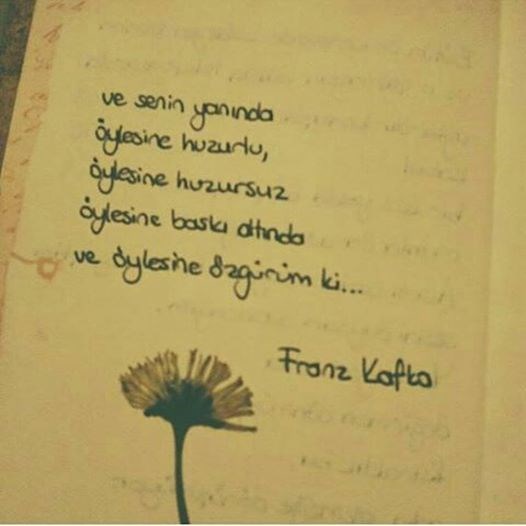 ve senin yanında
öylesine huzurlu,
öylesine huzursuz
öylesine baskı altında
ve öylesine özgürüm ki...
Franz Kafka